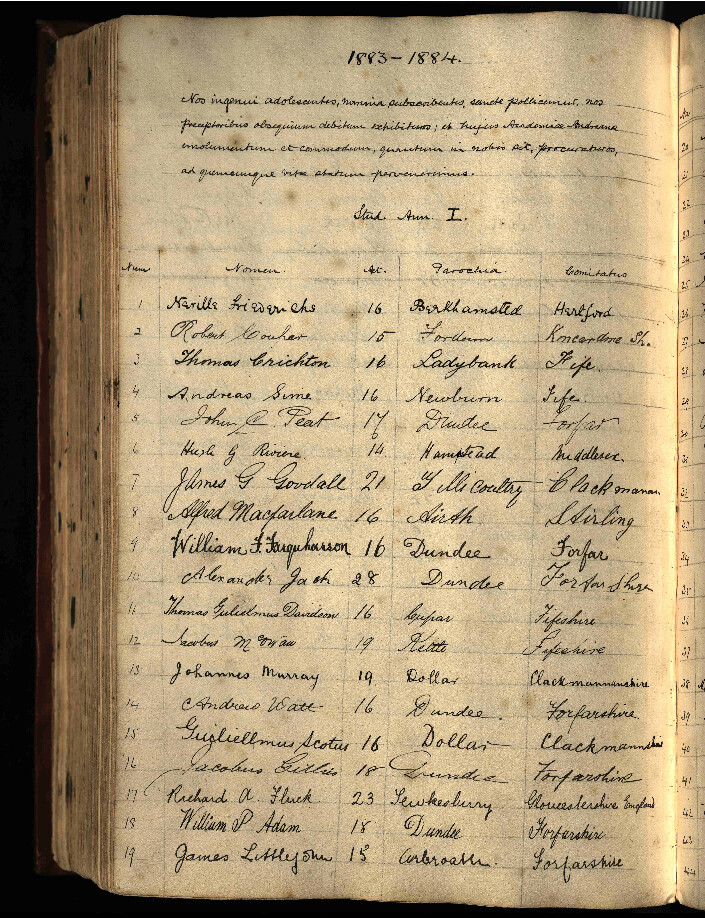 1883-1884.
Nos ingenui adolescentes, nomina subscribentes, sancte pollicemur, nos
Preceptoribus obsequium debitum exhibituros; et hujus Academiæ Andreanæ
emolumentum et commodum, quantum in nobis sit, procuraturos,
ad quemcunque vitæ statum pervenerimus.
Stud. Ann. I.
Num Nomen. Æt. Parochia. Comitatus
1 Neville Friederichs 16 Berkhamsted Hertford
2 Robert 15 Fordoun Kincardine Sh.
3 Thomas Crichton 16 Ladybank Fife.
4 Andreas Sime 16 Newburn Fife.
5 John C. Peat 17 Dundee Forfar
6 Hugh G Riviere. 14 Hampstead Middlesex.
7 James G Goodall 21 Tillicoultry Clackmanan
8 Alfred Macfarlane 16 Airth Stirling
9 William F. Farquharson 16 Dundee Forfar
10 Alexander Jack 28 Dundee Forfarshire
11 Thomas Gulielmus Davidson 16 Cupar Fifeshire
12 Jacobus McEwan 19 Fifeshire
13 Johannes Murray 19 Dollar Clackmannanshire
14 Andrew Watt 16 Dundee. Forfarshire.
15 Gugliellmus Scotus 16 Dollar Clackmannshire
16 Jacobus Gillies 18 Dundee Forfarshire
17 Richard A. Fluck 23 Tewkesbury Gloucestershire England
18 William P Adam 18 Dundee Forfarshire
19 James Littlejohn 15 Arbroath. Forfarshire